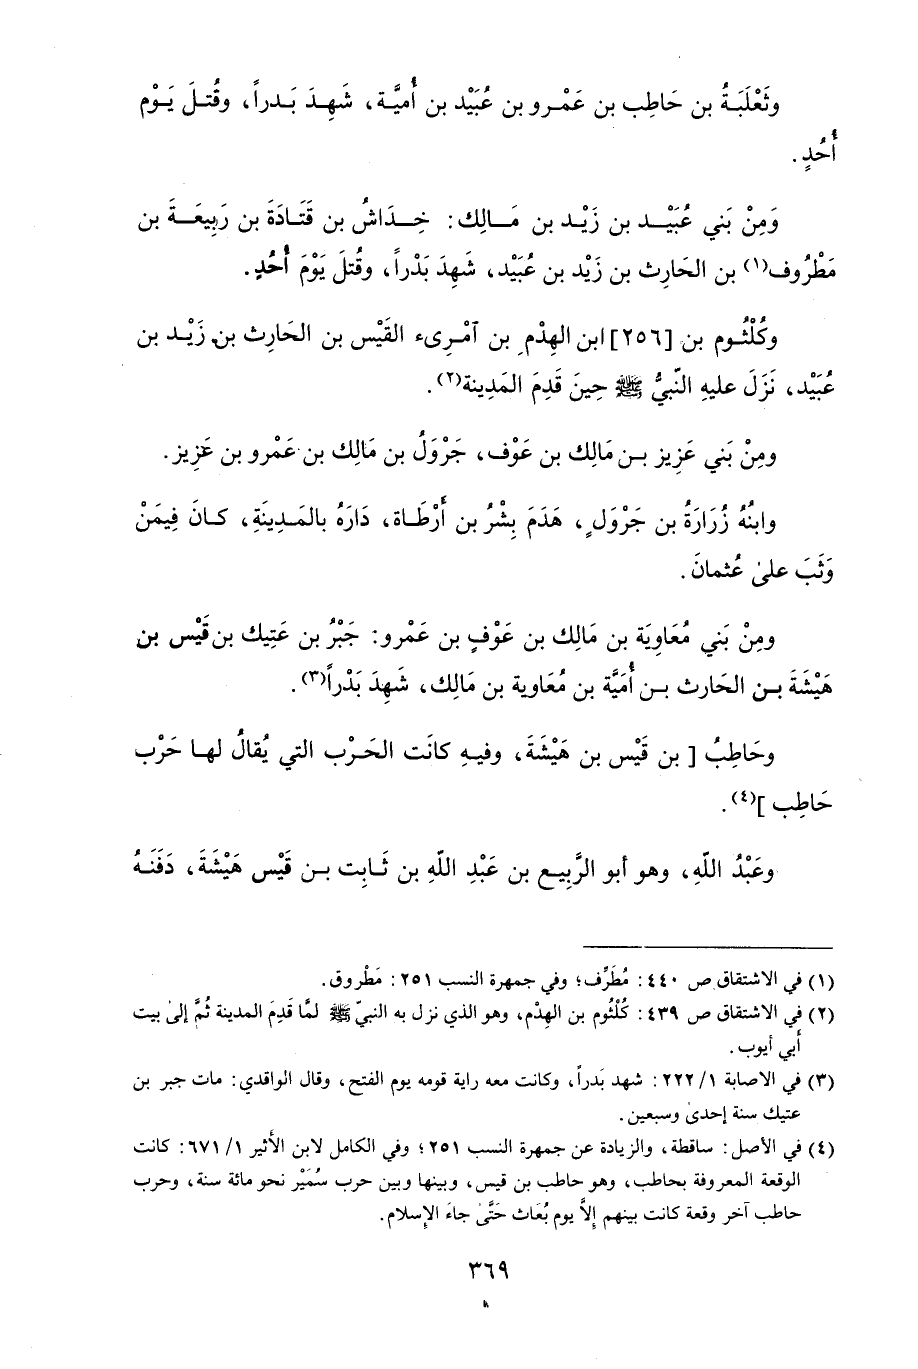 وثَعْلَبَةُ بن حَاطِب بن عَمْرو بن عُبَيْد بن أُميَّة، شَهِدَ بَدراً، وقُتلَ يَوْم
أُحُدٍ.
وَمِنْ بَني عُبَيْد بن زَيْد بن مَالِك: خِدَاشُ بن قَتَادَةَ بن رَبِيعَة بن
مَظْرُوف(١) بن الحَارِث بن زَيْد بن عُبَيْد، شَهِدَ بَدْراً، وقُتلَ يَوْمَ أُحُدٍ.
وكُلْثُوم بن [٢٥٦] ابن الهِدْمِ بن آمْرِىء القَيْس بن الحَارِث بن زَيْد بن
عُبَيْد، نَزَلَ عليهِ النّبيُّ ﷺ حِينَ قَدِمَ المَدِينة(٢).
ومِنْ بَني عَزِيز بن مَالِك بن عَوْف، جَرْوَلُ بن مَالِك بن عَمْرو بن عَزِيز.
وابنُهُ زُرَارَةُ بن جَرْوَلٍ، هَدَمَ بِشْرُ بن أَرْطَاة، دَارَهُ بالمَدِينَةِ، كانَ فِيمَنْ
وَثَبَ علىٰ عُثمانَ.
ومِنْ بَني مُعَاوِيَة بن مَالِك بن عَوْفٍ بن عَمْرو: جَبْرُ بن عَتِيك بن قَيْس بن
هَيْشَةَ بن الحَارث بن أُمَيَّة بن مُعَاوية بن مَالِك، شَهِدَ بَدْراً(٣).
وحَاطِبُ [ بن قَيْس بن هَيْشَةَ، وفيهِ كانَت الحَرْب التي يُقالُ لها حَرْب
حَاطِب ](٤).
وعَبْدُ اللّهِ، وهو أبو الرَّبِيع بن عَبْدِ اللّهِ بن ثَابِت بن قَيْس هَيْشَةَ، دَفَنَهُ
(١) في الاشتقاق ص ٤٤٠: مُطَرِّف؛ وفي جمهرة النسب ٢٥١: مَطْروق.
(٢) في الاشتقاق ص ٤٣٩: كُلْثُوم بن الهِدْم، وهو الذي نزل به النبيّ ﷺ لمَّا قَدِمَ المدينة ثُمَّ إلىٰ بيت
أَبي أيوب.
(٣) في الاصابة ١/ ٢٢٢: شهد بَدراً، وكانت معه راية قومه يوم الفتح، وقال الواقدي: مات جبر بن
عتيك سنة إحدىٰ وسبعين.
(٤) في الأصل: ساقطة، والزيادة عن جمهرة النسب ٢٥١؛ وفي الكامل لابن الأثير ١/ ٦٧١: كانت
الوقعة المعروفة بحاطب، وهو حاطب بن قيس، وبينها وبين حرب سُمَيْر نحو مائة سنة، وحرب
حاطب آخر وقعة كانت بينهم إلاَّ يوم بُعَاث حَتَّىٰ جاءَ الإسلام.
٣٦٩